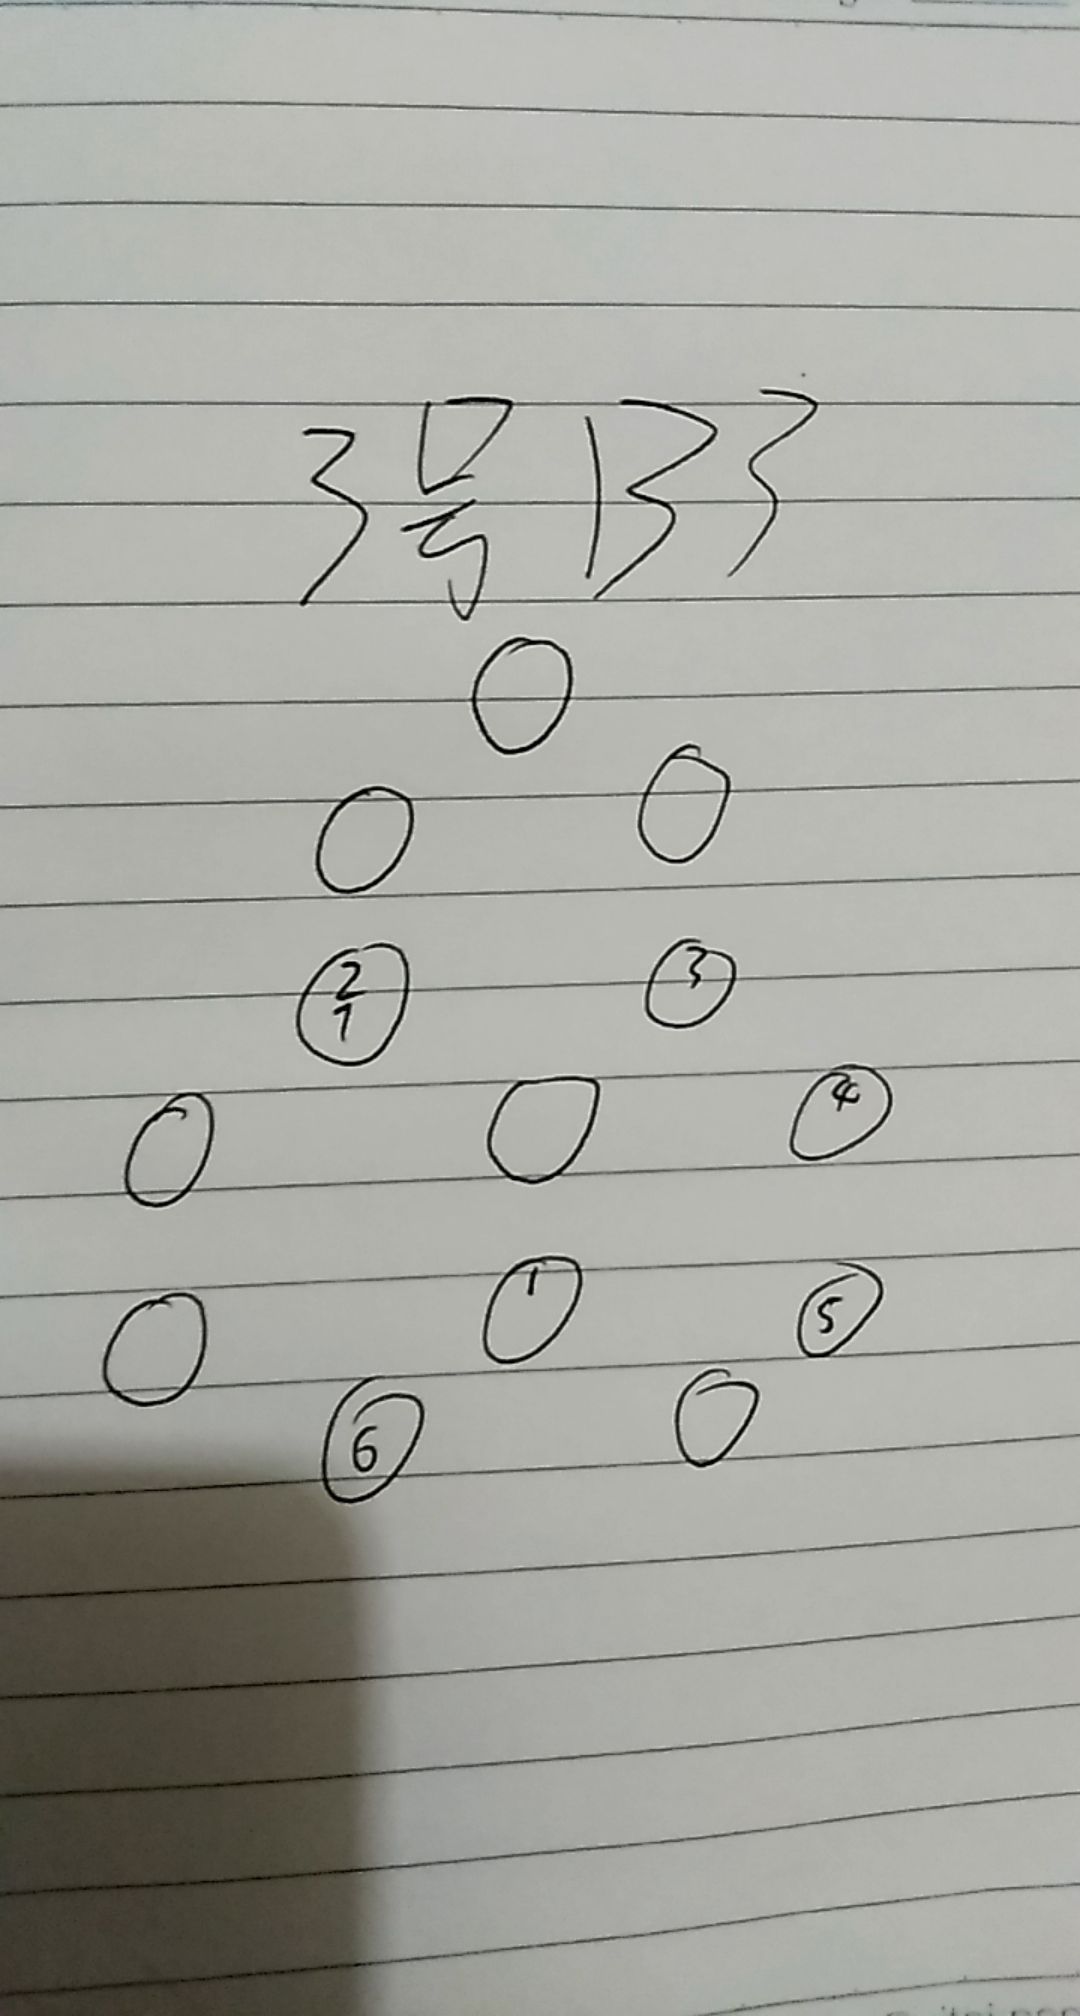 3号B3
2 3
7
4
1 5
6